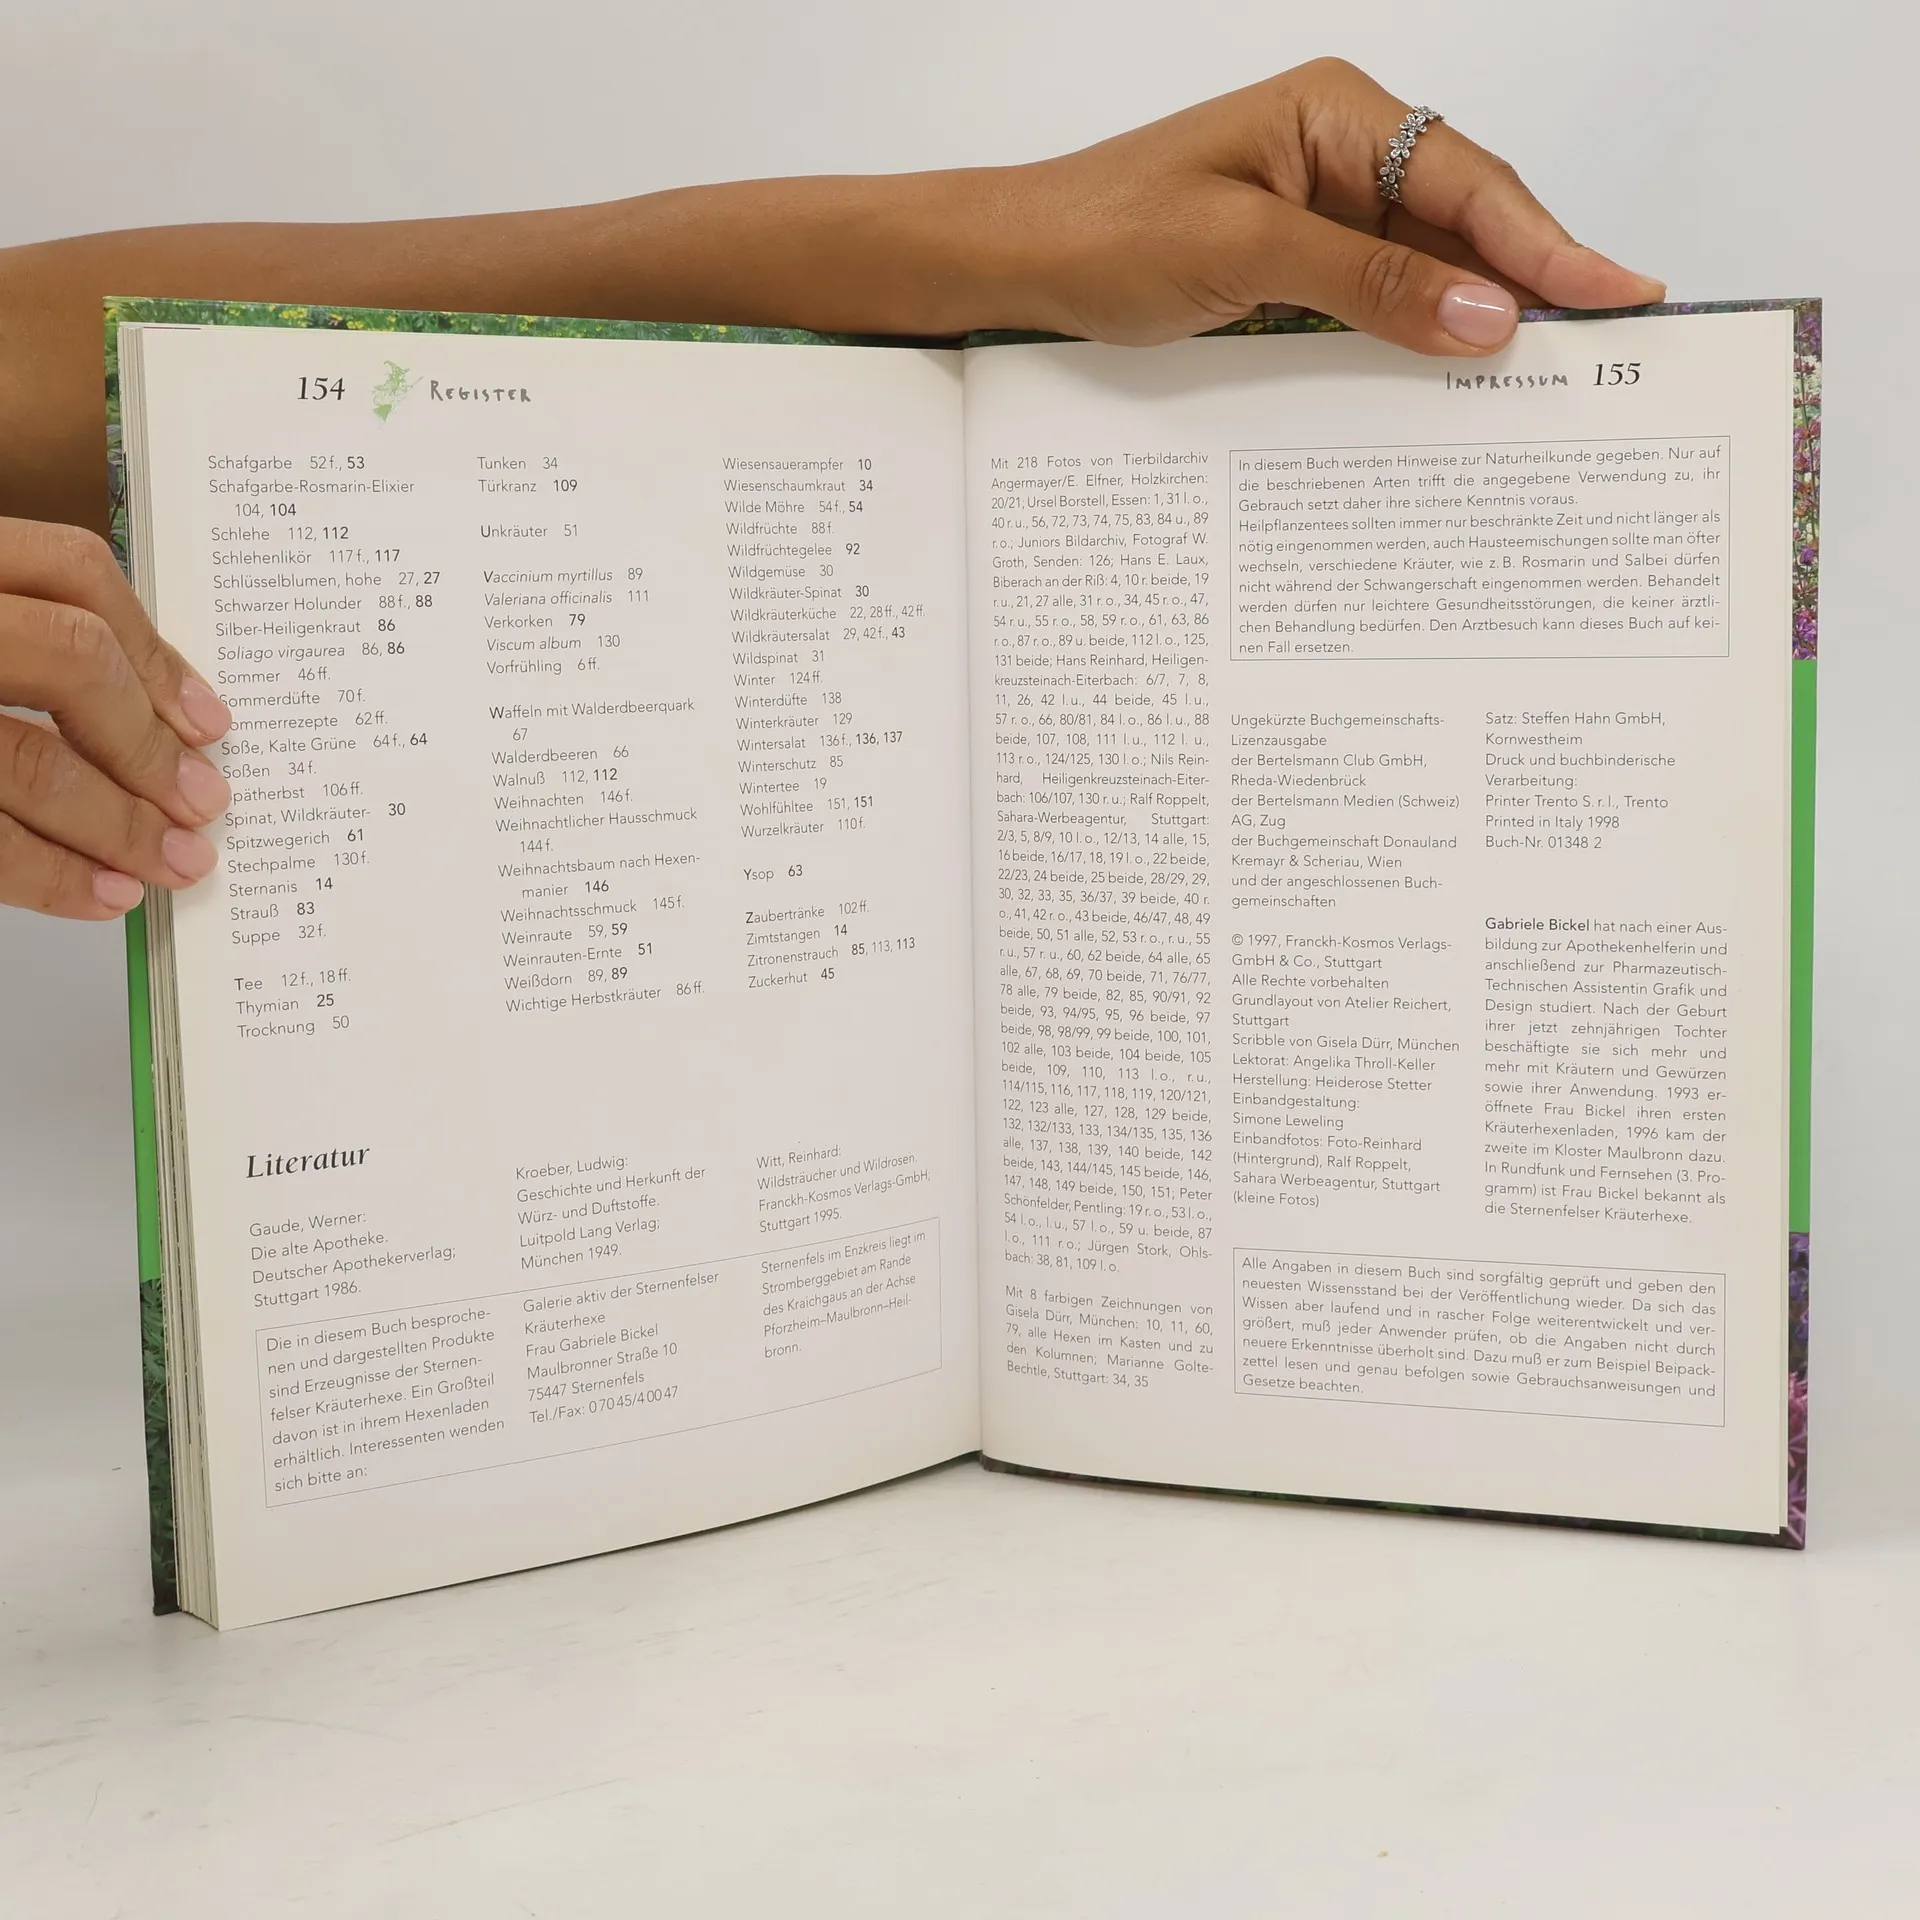 154 REGISTER
Schafgarbe 52 f., 53
Schafgarbe-Rosmarin-Elixier
104, 104
Schlehe 112, 112
Schlehenlikör 117 f., 117
Schlüsselblumen, hohe 27, 27
Schwarzer Holunder 88 f., 88
Silber-Heiligenkraut 86
Soliago virgaurea 86, 86
Sommer 46 ff.
Sommerdüfte 70 f.
ommerrezepte 62 ff.
Soße, Kalte Grüne 64 f., 64
Soßen 34 f.
pätherbst 106 ff.
Spinat, Wildkräuter- 30
Spitzwegerich 61
Stechpalme 130 f.
Sternanis 14
Strauß 83
Suppe 32 f.
Tee 12 f., 18 ff.
Thymian 25
Trocknung 50
Tunken 34
Türkranz 109
Unkräuter 51
Vaccinium myrtillus 89
Valeriana officinalis 111
Verkorken 79
Viscum album 130
Vorfrühling 6 ff.
Waffeln mit Walderdbeerquark
67
Walderdbeeren 66
Walnuß 112, 112
Weihnachten 146 f.
Weihnachtlicher Hausschmuck
144 f.
Weihnachtsbaum nach Hexen-
manier 146
Weihnachtsschmuck 145 f.
Weinraute 59, 59
Weinrauten-Ernte 51
Weißdorn 89, 89
Wichtige Herbstkräuter 86 ff.
Wiesensauerampfer 10
Wiesenschaumkraut 34
Wilde Möhre 54 f., 54
Wildfrüchte 88 f.
Wildfrüchtegelee 92
Wildgemüse 30
Wildkräuter-Spinat 30
Wildkräuterküche 22, 28 ff., 42 ff.
Wildkräutersalat 29, 42 f., 43
Wildspinat 31
Winter 124 ff.
Winterdüfte 138
Winterkräuter 129
Wintersalat 136 f., 136, 137
Winterschutz 85
Wintertee 19
Wohlfühltee 151, 151
Wurzelkräuter 110 f.
Ysop 63
Zaubertränke 102 ff.
Zimtstangen 14
Zitronenstrauch 85, 113, 113
Zuckerhut 45
Literatur
Gaude, Werner:
Die alte Apotheke.
Deutscher Apothekerverlag;
Stuttgart 1986.
Kroeber, Ludwig:
Geschichte und Herkunft der
Würz- und Duftstoffe.
Luitpold Lang Verlag;
München 1949.
Witt, Reinhard:
Wildsträucher und Wildrosen.
Franckh-Kosmos Verlags-GmbH;
Stuttgart 1995.
Die in diesem Buch besproche-
nen und dargestellten Produkte
sind Erzeugnisse der Sternen-
felser Kräuterhexe. Ein Großteil
davon ist in ihrem Hexenladen
erhältlich. Interessenten wenden
sich bitte an:
Galerie aktiv der Sternenfelser
Kräuterhexe
Frau Gabriele Bickel
Maulbronner Straße 10
75447 Sternenfels
Tel./Fax: 0 70 45/4 00 47
Sternenfels im Enzkreis liegt im
Stromberggebiet am Rande
des Kraichgaus an der Achse
Pforzheim–Maulbronn–Heil-
bronn.
IMPRESSUM 155
Mit 218 Fotos von Tierbildarchiv
Angermayer/E. Elfner, Holzkirchen:
20/21; Ursel Borstell, Essen: 1, 31 l. o.,
40 r. u., 56, 72, 73, 74, 75, 83, 84 u., 89
r. o.; Juniors Bildarchiv, Fotograf W.
Groth, Senden: 126; Hans E. Laux,
Biberach an der Riß: 4, 10 r. beide, 19
r. u., 21, 27 alle, 31 r. o., 34, 45 r. o., 47,
54 r. u., 55 r. o., 58, 59 r. o., 61, 63, 86
r. o., 87 r. o., 89 u. beide, 112 l. o., 125,
131 beide; Hans Reinhard, Heiligen-
kreuzsteinach-Eiterbach: 6/7, 7, 8,
11, 26, 42 l. u., 44 beide, 45 l. u.,
57 r. o., 66, 80/81, 84 l. o., 86 l. u., 88
beide, 107, 108, 111 l. u., 112 l. u.,
113 r. o., 124/125, 130 l. o.; Nils Rein-
hard, Heiligenkreuzsteinach-Eiter-
bach: 106/107, 130 r. u.; Ralf Roppelt,
Sahara-Werbeagentur, Stuttgart:
2/3, 5, 8/9, 10 l. o., 12/13, 14 alle, 15,
16 beide, 16/17, 18, 19 l. o., 22 beide,
22/23, 24 beide, 25 beide, 28/29, 29,
30, 32, 33, 35, 36/37, 39 beide, 40 r.
o., 41, 42 r. o., 43 beide, 46/47, 48, 49
beide, 50, 51 alle, 52, 53 r. o., r. u., 55
r. u., 57 r. u., 60, 62 beide, 64 alle, 65
alle, 67, 68, 69, 70 beide, 71, 76/77,
78 alle, 79 beide, 82, 85, 90/91, 92
beide, 93, 94/95, 95, 96 beide, 97
beide, 98, 98/99, 99 beide, 100, 101,
102 alle, 103 beide, 104 beide, 105
beide, 109, 110, 113 l. o., r. u.,
114/115, 116, 117, 118, 119, 120/121,
122, 123 alle, 127, 128, 129 beide,
132, 132/133, 133, 134/135, 135, 136
alle, 137, 138, 139, 140 beide, 142
beide, 143, 144/145, 145 beide, 146,
147, 148, 149 beide, 150, 151; Peter
Schönfelder, Pentling: 19 r. o., 53 l. o.,
54 l. o., l. u., 57 l. o., 59 u. beide, 87
l. o., 111 r. o.; Jürgen Stork, Ohls-
bach: 38, 81, 109 l. o.
Mit 8 farbigen Zeichnungen von
Gisela Dürr, München: 10, 11, 60,
79, alle Hexen im Kasten und zu
den Kolumnen; Marianne Golte-
Bechtle, Stuttgart: 34, 35
In diesem Buch werden Hinweise zur Naturheilkunde gegeben. Nur auf
die beschriebenen Arten trifft die angegebene Verwendung zu, ihr
Gebrauch setzt daher ihre sichere Kenntnis voraus.
Heilpflanzentees sollten immer nur beschränkte Zeit und nicht länger als
nötig eingenommen werden, auch Hausteemischungen sollte man öfter
wechseln, verschiedene Kräuter, wie z. B. Rosmarin und Salbei dürfen
nicht während der Schwangerschaft eingenommen werden. Behandelt
werden dürfen nur leichtere Gesundheitsstörungen, die keiner ärztli-
chen Behandlung bedürfen. Den Arztbesuch kann dieses Buch auf kei-
nen Fall ersetzen.
Ungekürzte Buchgemeinschafts-
Lizenzausgabe
der Bertelsmann Club GmbH,
Rheda-Wiedenbrück
der Bertelsmann Medien (Schweiz)
AG, Zug
der Buchgemeinschaft Donauland
Kremayr & Scheriau, Wien
und der angeschlossenen Buch-
gemeinschaften
© 1997, Franckh-Kosmos Verlags-
GmbH & Co., Stuttgart
Alle Rechte vorbehalten
Grundlayout von Atelier Reichert,
Stuttgart
Scribble von Gisela Dürr, München
Lektorat: Angelika Throll-Keller
Herstellung: Heiderose Stetter
Einbandgestaltung:
Simone Leweling
Einbandfotos: Foto-Reinhard
(Hintergrund), Ralf Roppelt,
Sahara Werbeagentur, Stuttgart
(kleine Fotos)
Satz: Steffen Hahn GmbH,
Kornwestheim
Druck und buchbinderische
Verarbeitung:
Printer Trento S. r. l., Trento
Printed in Italy 1998
Buch-Nr. 01348 2
Gabriele Bickel hat nach einer Aus-
bildung zur Apothekenhelferin und
anschließend zur Pharmazeutisch-
Technischen Assistentin Grafik und
Design studiert. Nach der Geburt
ihrer jetzt zehnjährigen Tochter
beschäftigte sie sich mehr und
mehr mit Kräutern und Gewürzen
sowie ihrer Anwendung. 1993 er-
öffnete Frau Bickel ihren ersten
Kräuterhexenladen, 1996 kam der
zweite im Kloster Maulbronn dazu.
In Rundfunk und Fernsehen (3. Pro-
gramm) ist Frau Bickel bekannt als
die Sternenfelser Kräuterhexe.
Alle Angaben in diesem Buch sind sorgfältig geprüft und geben den
neuesten Wissensstand bei der Veröffentlichung wieder. Da sich das
Wissen aber laufend und in rascher Folge weiterentwickelt und ver-
größert, muß jeder Anwender prüfen, ob die Angaben nicht durch
neuere Erkenntnisse überholt sind. Dazu muß er zum Beispiel Beipack-
zettel lesen und genau befolgen sowie Gebrauchsanweisungen und
Gesetze beachten.